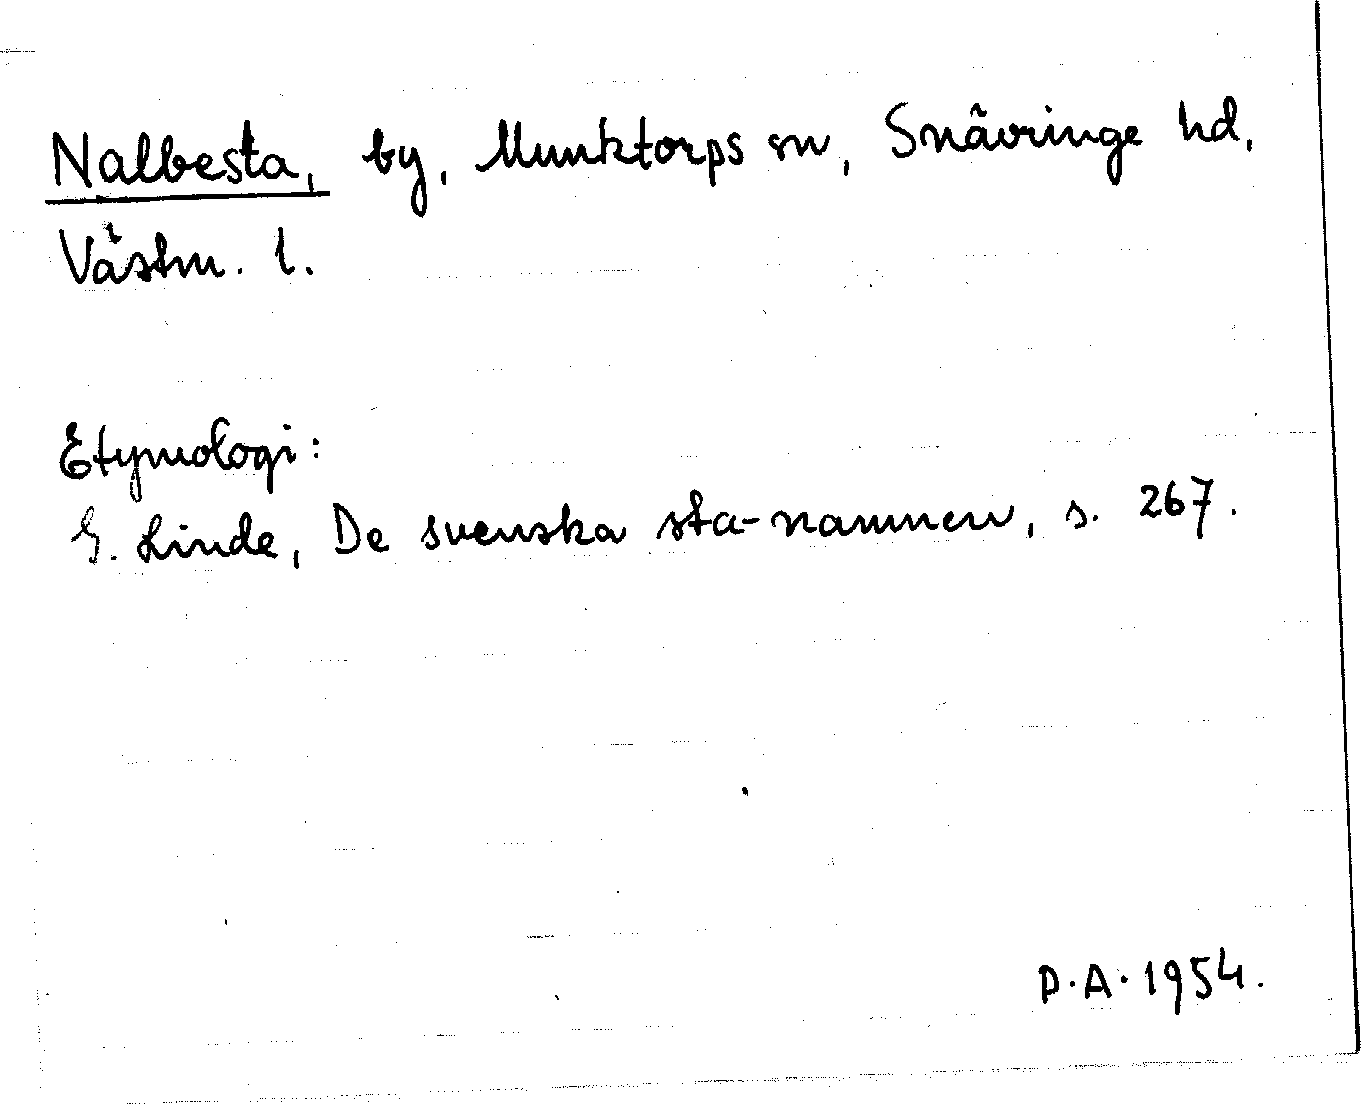 Nalbesta, by, Munktorps sn, Snävringe hd,
Västm. l.
Etymologi:
G. Linde, De svenska sta-namnen, s. 267.
D.A. 1954.